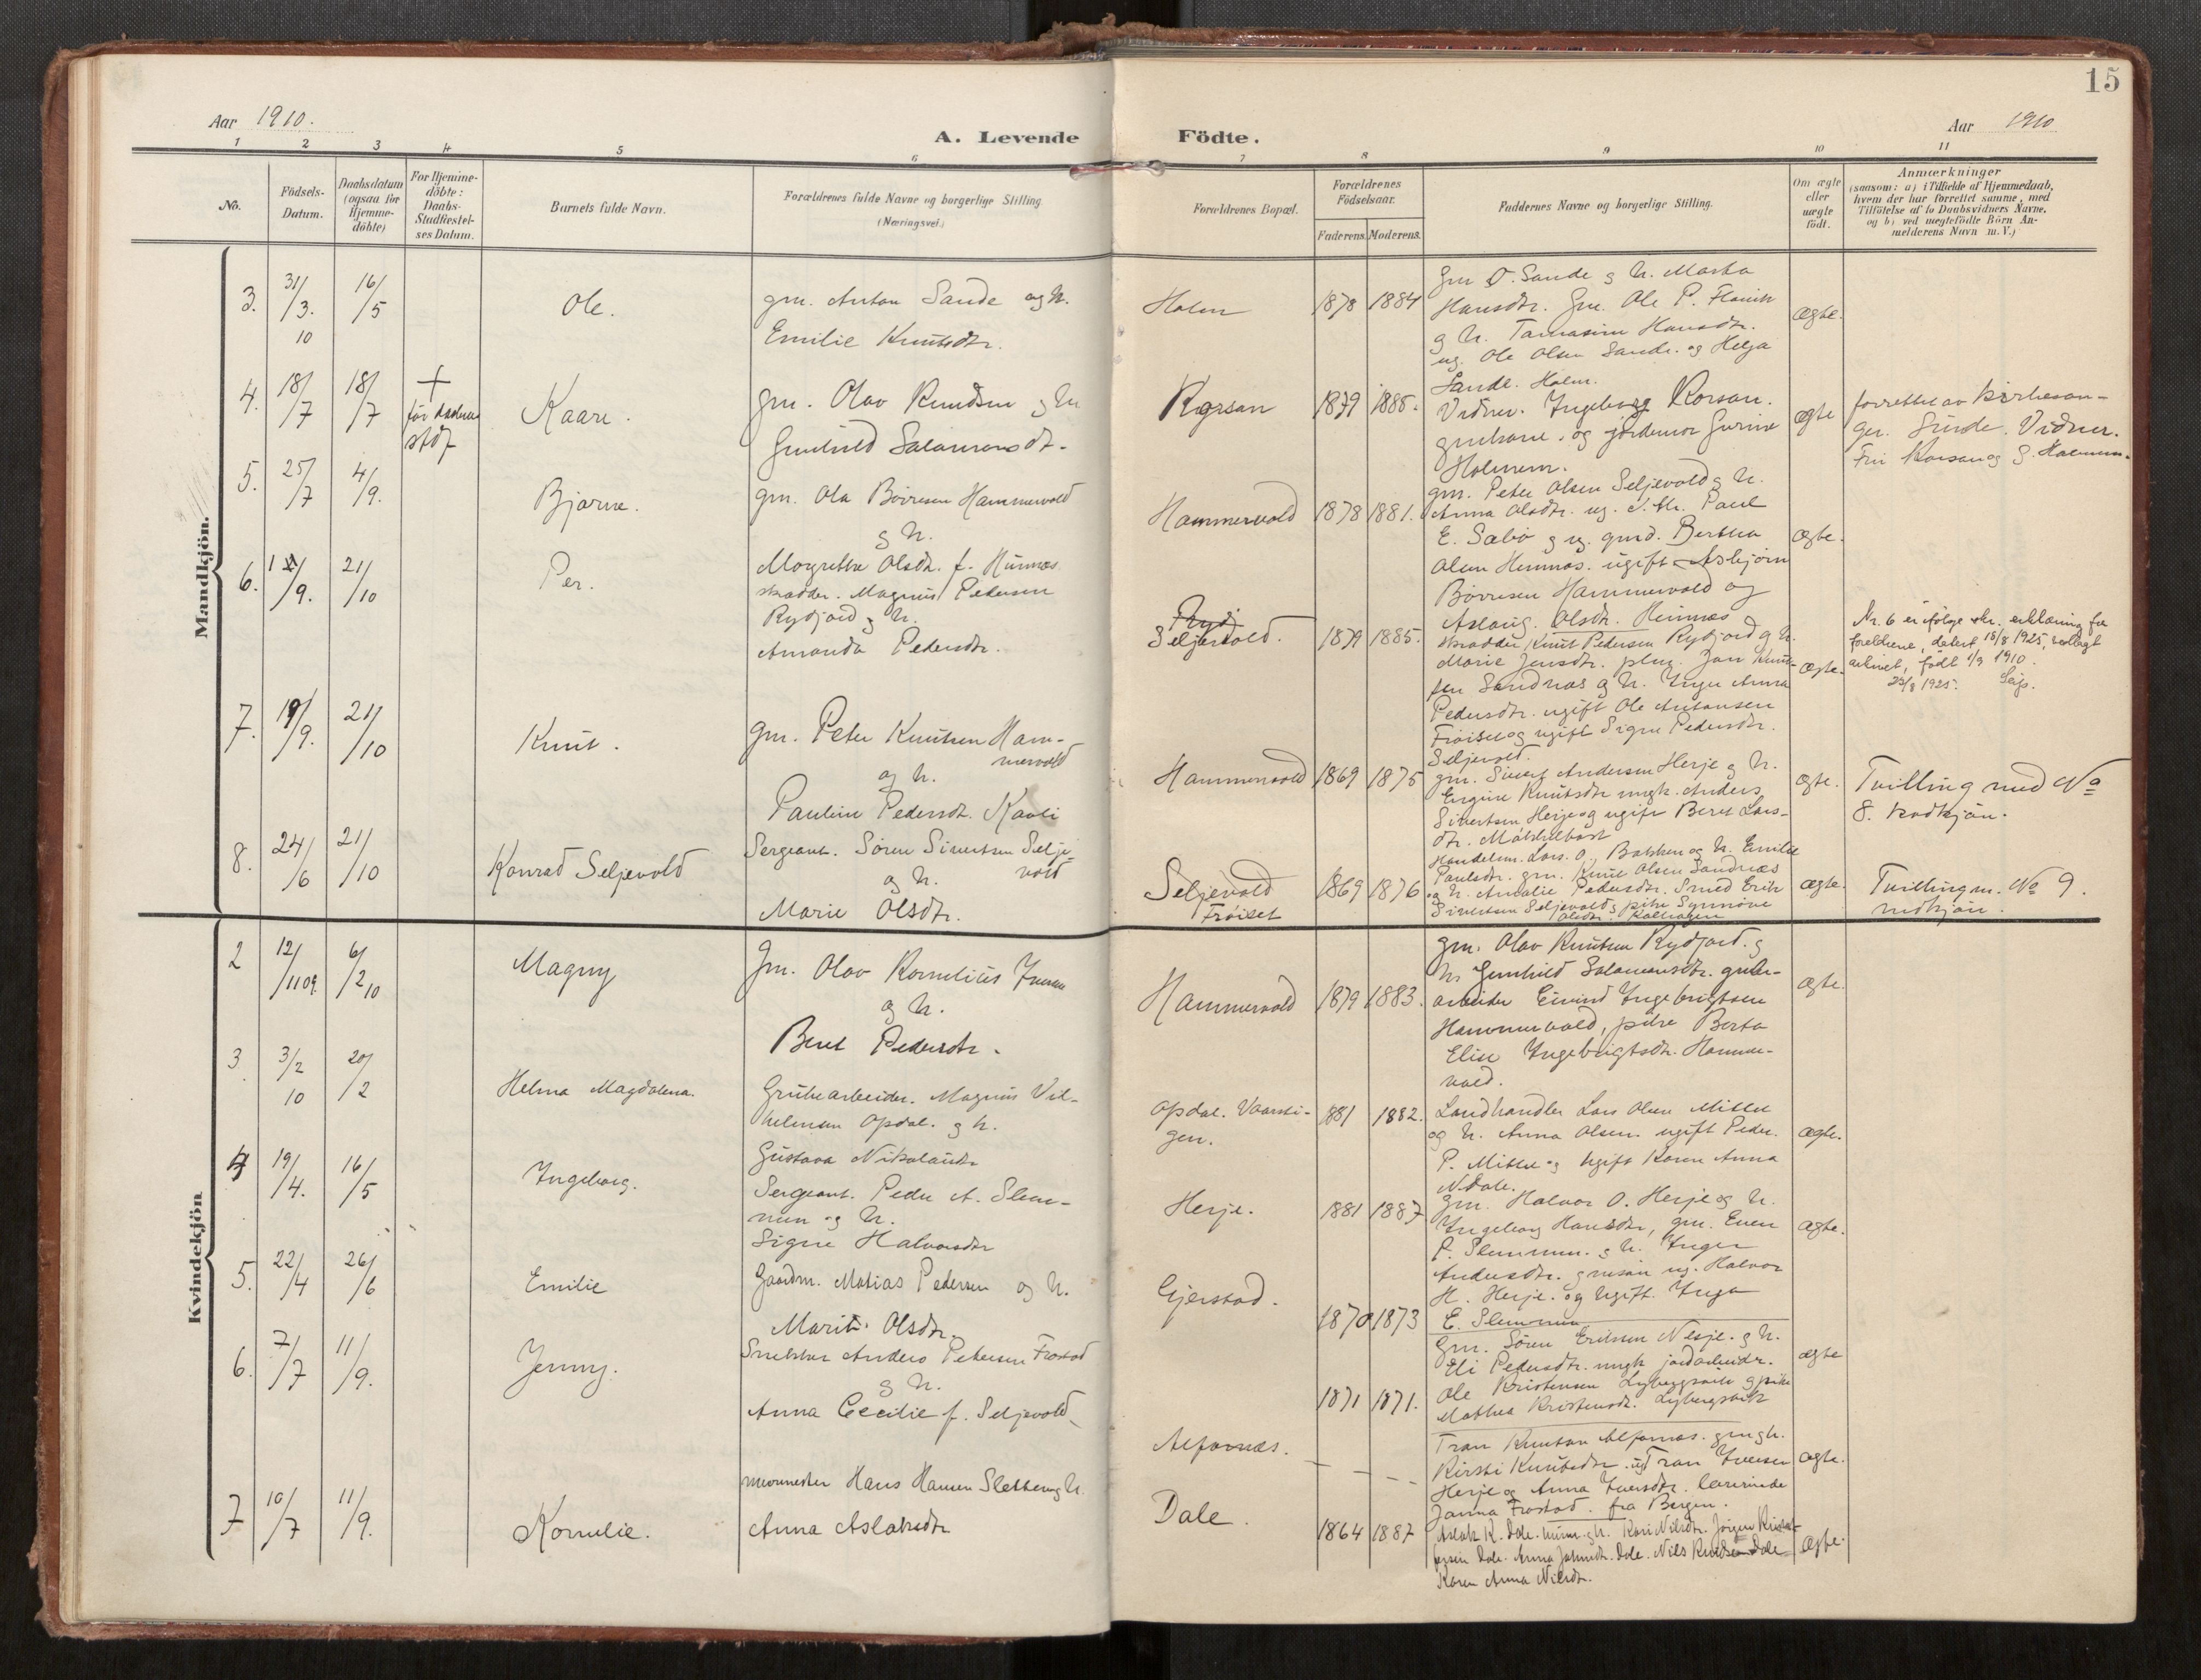 15
Aar 1910.
A. Levende Födte.
Aar 1910
1 2 3 4 5 6 7 8 9 10 11
No.
Födsels-
Datum.
Daabsdatum
(ogsaa for
Hjemme-
döbte)
For Hjemme-
döbte:
Daabs-
Stadfæstel-
ses Datum.
Barnets fulde Navn.
Forældrenes fulde Navne og borgerlige Stilling.
(Næringsvei.)
Forældrenes Bopæl.
Forældrenes
Födselsaar.
Faderens. Moderens.
Faddernes Navne og borgerlige Stilling.
Om ægte
eller
uægte
födt.
Anmærkninger
(saasom: a) i Tilfælde af Hjemmedaab,
hvem der har forrettet samme, med
Tilföielse af to Daabsvidners Navne,
og b) ved uægtefödte Börn An-
melderens Navn m. V.)
Mandkjön.
3. 31/3. 10 16/5 Ole.
gm. Anton Sande og h.
Emilie Knutsdtr.
Holm 1878 1884
Gm O. Sande og h. Marta
Hansdtr. Gm. Ole P.
og h. Hansdtr.
ug. Ole Olsen Sande. og Helga
Sande. Holm.
ægte.
4. 18/7 18/7 + før stadf Kaare.
gm. Olav Knudsen og h
Gunhild Salamonsdt.
Korsan 1879 1885.
Vidner. Ingeborg Korsan.
gmkone. og jordemor Gurine
Holmem.
ægte
forrettet av kirkesan-
ger. Sunde. Vidner.
Fru Korsan og G. Holmem.
5. 25/7 4/9. Bjarne.
gm. Ola Børresen Hammervold
og h.
Magrethe Olsdtr. f. Hunnes
Hammervold 1878 1881.
gm. Peter Olsen Seljevold og h.
Anna Olsdtr. ug. Paul
E. Sæbø og ug. Bertha
Olsen Hunnes. ugift Asbjørn
Børresen Hammervold og
Aslaug. Olsdtr. Hunnes
ægte.
6. /9. 21/10 Per.
skrædder. Magnus Pedersen
Rydjord og h.
Amanda Pedersdtr.
Seljevold. 1879 1885.
skrædder Knut Pedersen Rydjord og h.
Marie Jensdtr. Jon Knut-
sen Sandnæs og h. Inger Anna
Pedersdtr. ugift Ole Antonsen
Frøiset og ugift Signe Pedersdtr.
Seljevold.
ægte.
Nr. 6 er ifølge skr. erklæring fra
foreldrene, datert 18/8 1925, vedlagt
arkivet, født 1/9 1910.
25/8 1925.
7. 19/9. 21/10 Knut.
gm. Peter Knutsen Ham-
mervold
og h.
Pauline Pedersdt. Kavli
Hammervold 1869 1875
gm. Sivert Andersen Herje og h.
Knutsdtr ungk. Anders
Sivertsen Herje og ugift Beret Lars-
dtr.
ægte.
Tvilling med No
8. kvdkjøn.
8. 24/6 21/10 Konrad Seljevold
Sergeant. Søren Sivertsen Selje-
vold
og h.
Marie Olsdtr.
Seljevold
Frøiset
1869 1876
Handelsm. Lars. O. og h. Emilie
Paulsdtr. gm. Knut Olsen Sandnæs
og h. Amalie Pedersdtr. Smed Erik
Sivertsen Seljevold og pike Synnøve
Olsdtr.
ægte.
Tvilling m. No 9.
Kvindekjön
2 12/11 09. 6/2 10 Magny
Gm. Olav Kornelius Iversen
og h.
Beret Pedersdtr.
Hammervold 1879 1883.
gm. Olav Knutsen Rydjord. og
h. Gunhild Salamonsdtr. grube-
arbeider Eivind Ingebrigtsen
Hammervold, pike Berta
Elise Ingebrigtsdtr. Hammer-
vold.
ægte.
3 3/2 10 20/2 Helma Magdalena.
Grubearbeider. Magnus Vil-
helmsen Opdal. og h.
Gustava Nikolaisdtr
Opdal. Vaarsti-
gen.
1881 1882.
Landhandler Lars Olsen Mittet
og h. Anna Olsen. ugift Peder
P. Mittet og ugift Karen Anna
N. Dale.
ægte.
4 19/4. 16/5 Ingeborg.
Sergeant. Peder A. Slem-
men og h.
Signe Halvorsdtr
Herje. 1881 1887
Gm. Halvor O. Herje og h.
Ingeborg Hansdtr, gm. Even
P. Slemmen. og h. Inger
Andersdtr. gmsøn ug. Halvor
H. Herje. og ugift. Inga
E. Slemmen
ægte.
5. 22/4 26/6 Emilie
Gaardm. Matias Pedersen og h.
Marit Olsdtr.
Gjerstad. 1870 1873
Gm. Søren Eriksen Nesje. og h.
Eli Pedersdtr. ungk jordarbeider.
Ole Kristensen Lybergsvik og pike
Mathea Kristensdt. Lybergsvik
ægte
6. 7/7 11/9. Jenny.
Snekker Anders Petersen Frostad
og h.
Anna Cecilie f. Seljevold
Alfarnæs. 1871 1871.
Tran Knutson Alfarnæs. gm og h.
Kirsti Knutsdtr. ugt Tran Iversen
Herje og Anna Iversdtr. lærerinde
Janna Frostad. fra Bergen.
ægte.
7 10/7 11/9. Kornelie.
Hans Hansen Sletten og h.
Anna Aslaksdtr
Dale. 1864 1887
Aslak K. Dale. og h. Kari Nilsdtr. Jørgen Kristof-
fersen Dale. Anna Johnsdtr. Dale. Nils Knudsen Dale
Karen Anna Nilsdt.
ægte.